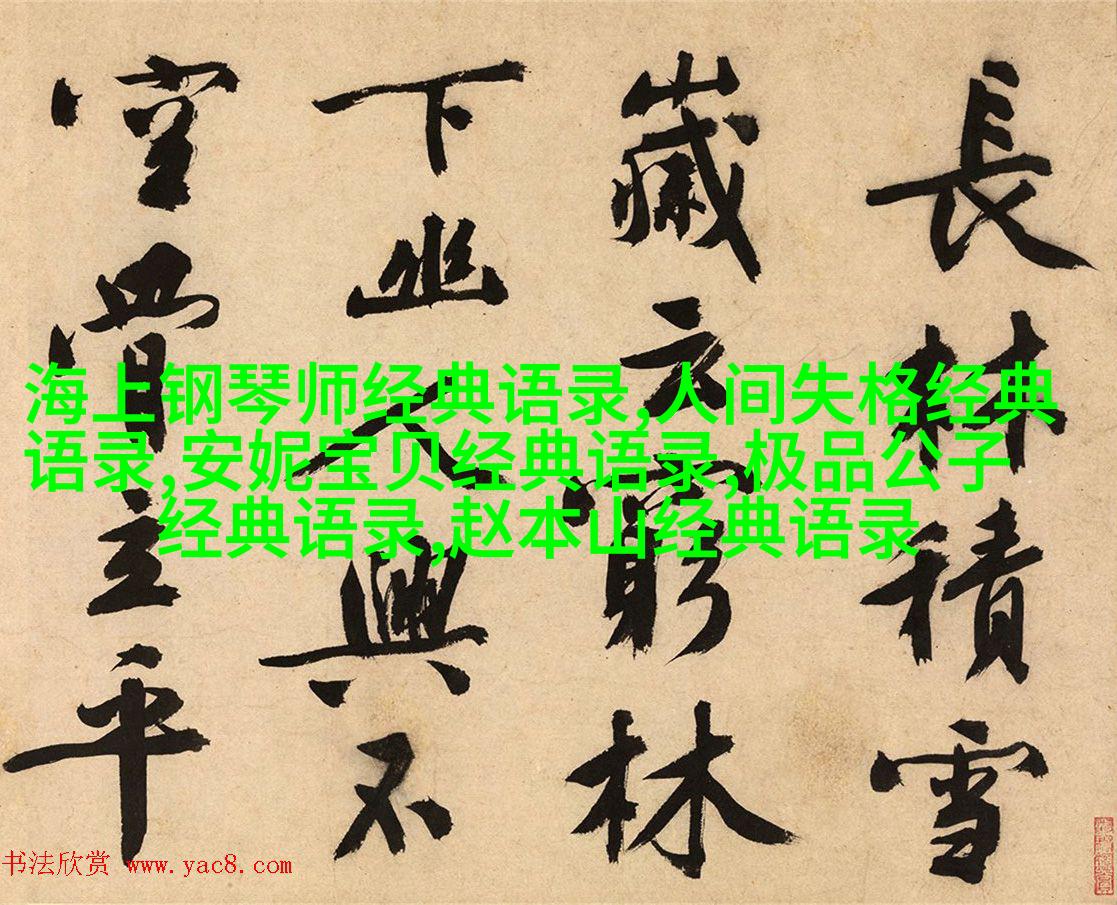 長林積雪
歲云窮林
下幽人興不
空骨立平
海上钢琴师经典语录,人间失格经典
语录,安妮宝贝经典语录,极品公子
经典语录,赵本山经典语录
书法欣赏 www.yac8.com